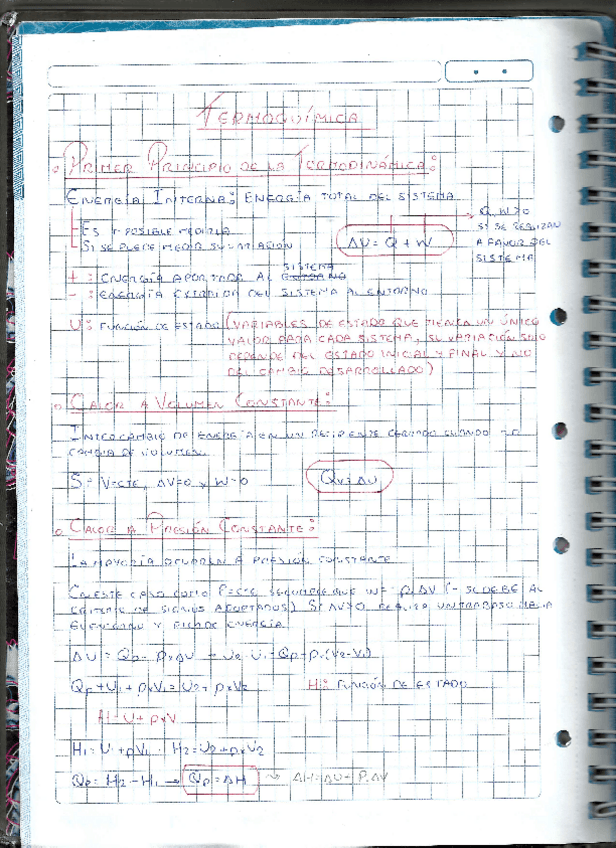 TERMOQUÍMICA
PRIMER PRINCIPIO DE LA TERMODINÁMICA:
ENERGÍA INTERNA: ENERGÍA TOTAL DEL SISTEMA
ES IMPOSIBLE MEDIRLA
SI SE PUEDE MEDIR SU VARIACIÓN
ΔU = Q + W
→ Q, W > 0
SI SE REALIZAN
A FAVOR DEL
SISTEMA
+ : ENERGÍA APORTADA AL SISTEMA
- : ENERGÍA CEDIDA DEL SISTEMA AL ENTORNO
U: FUNCIÓN DE ESTADO (VARIABLES DE ESTADO QUE TIENEN UN ÚNICO
VALOR PARA CADA SISTEMA, SU VARIACIÓN SOLO
DEPENDE DEL ESTADO INICIAL Y FINAL Y NO
DEL CAMBIO DESARROLLADO)
CALOR A VOLUMEN CONSTANTE:
INTERCAMBIO DE ENERGÍA EN UN RECIPIENTE CERRADO CUANDO NO
CAMBIA DE VOLUMEN.
Si V=CTE, ΔV=0 y W=0
Qv = ΔU
CALOR A PRESIÓN CONSTANTE:
LA MAYORÍA OCURREN A PRESIÓN CONSTANTE
EN ESTE CASO COMO P=CTE W = - P·ΔV (- SE DEBE AL
CRITERIO DE SIGNOS ADOPTADOS) SI ΔV>0 REALIZA UN TRABAJO
Y PIERDE ENERGÍA
ΔU = Qp - P·ΔV → U2 - U1 = Qp - P·(V2-V1)
Qp + U1 + P·V1 = U2 + P·V2
H: FUNCIÓN DE ESTADO
H = U + P·V
H1 = U1 + P·V1 H2 = U2 + P·V2
Qp = H2 - H1 → Qp = ΔH → ΔH = ΔU + P·ΔV